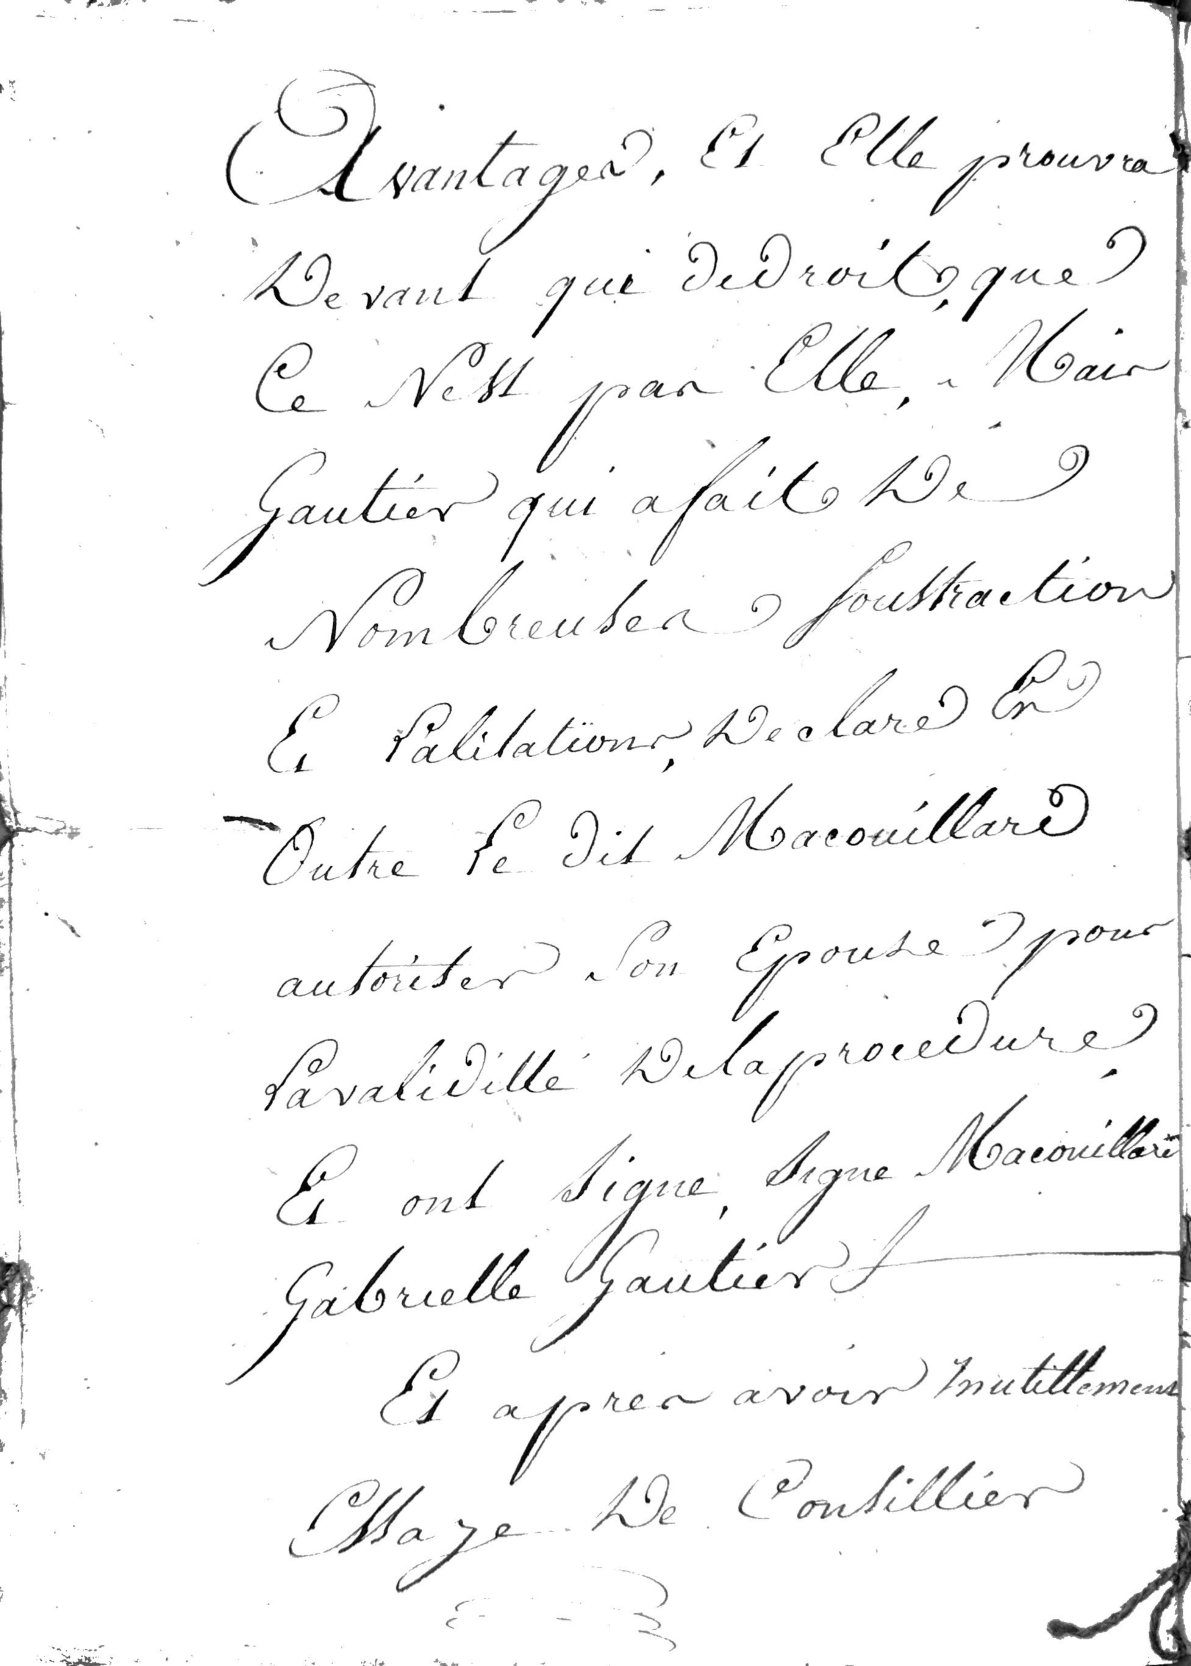 Avantages, Et Elle prouvra
Devant qui dedroit, que
Ce Nest pas Elle, Mais
Gautier qui a fait De
Nombreuses soustraction
Et Declare En
Outre Le dit Macouillard
autoriser Son Epouse pour
Lavaliditté Delaprocedure,
Et ont signe, signe Macouillard
Gabrielle Gautier
Et apres avoir Inutillement
Essaye De Consillier